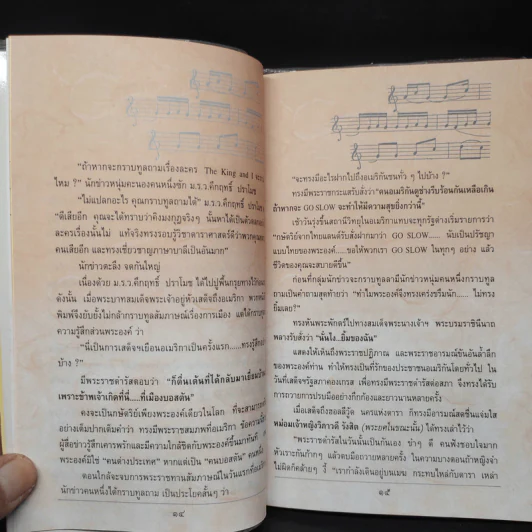 “ถ้าหากจะกราบทูลถามเรื่องละคร The King and I จะ
ไหม ?” นักข่าวหนุ่มคะนองคนหนึ่งซัก ม.ร.ว.คึกฤทธิ์ ปราโมช
“ไม่แปลกอะไร คุณกราบทูลถามได้” ม.ร.ว.คึกฤทธิ์
“ดีเสียอีก คุณจะได้ทราบว่าคิงมงกุฎจริงๆ นั้นหาได้เป็นตัวตลก
ละครเรื่องนั้นไม่ แท้จริงทรงรอบรู้วิชาดาราศาสตร์ดีว่าพวกคุณ
คนเสียอีก และทรงเชี่ยวชาญภาษาบาลีเป็นอันมาก”
นักข่าวตะลึง จดกันใหญ่
เนื่องด้วย ม.ร.ว.คึกฤทธิ์ ปราโมช ได้ไปปูพื้นกรุยทางไว้
ดังนั้น เมื่อพระบาทสมเด็จพระเจ้าอยู่หัวเสด็จถึงอเมริกา พวก
พิมพ์จึงยับยั้งไม่กล้ากราบทูลสัมภาษณ์เรื่องการเมือง แต่ได้กราบทูล
ความรู้สึกส่วนพระองค์ ว่า
“นี่เป็นการเสด็จฯเยือนอเมริกาเป็นครั้งแรก.....ทรงรู้สึก
บ้าง ?”
มีพระราชดำรัสตอบว่า “ก็ตื่นเต้นที่ได้กลับมาเยี่ยม
เพราะข้าพเจ้าเกิดที่นี่....ที่เมืองบอสตัน”
คงจะเป็นกษัตริย์เพียงพระองค์เดียวในโลก ที่จะสามารถ
อย่างเต็มปากเต็มคำว่า ทรงมีพระราชสมภพที่อเมริกา ข้อความนี้
ผู้สื่อข่าวรู้สึกเคารพรักและมีความใกล้ชิดกับพระองค์ขึ้นมาทันที
พระองค์มิใช่ “คนต่างประเทศ” หากแต่เป็น “คนบอสตัน” คนหนึ่ง
ตอนใกล้จะจบการพระราชทานสัมภาษณ์ในวันแรกที่
นักข่าวคนหนึ่งได้กราบทูลถาม เป็นประโยคสั้นๆ ว่า
๑๔
“จะทรงมีอะไรฝากไปถึงอเมริกันชนทั่ว ๆ ไปบ้าง ?”
ทรงมีพระราชกระแสรับสั่งว่า“คนอเมริกันดูช่างรีบร้อนกันเหลือเกิน
ถ้าหากจะ GO SLOW จะทำให้มีความสุขยิ่งกว่านี้”
เช้าวันรุ่งขึ้นสถานีวิทยุในอเมริกาแทบจะทุกรัฐต่างเริ่มรายการว่า
“กษัตริย์จากไทยแลนด์รับสั่งฝากมาว่า GO SLOW...... นับเป็นปรัชญา
แบบไทยของพระองค์.....ขอให้พวกเรา GO SLOW ในทุกๆ อย่าง แล้ว
ชีวิตของคุณจะสบายดีขึ้น”
ก่อนที่กลุ่มนักข่าวจะกราบทูลลามีนักข่าวหนุ่มคนหนึ่งกราบทูล
ถามเป็นคำถามสุดท้ายว่า “ทำไมพระองค์จึงทรงเคร่งขรึมนัก...... ไม่ทรง
ยิ้มเลย?”
ทรงหันพระพักตร์ไปทางสมเด็จพระนางเจ้าฯ พระบรมราชินีนาถ
พลางรับสั่งว่า “นั่นไง...ยิ้มของฉัน”
แสดงให้เห็นถึงพระราชปฏิภาณ และพระราชอารมณ์ขันอันล้ำลึก
ของพระองค์ท่าน ทำให้ทรงเป็นที่รักของประชาชนอเมริกันโดยทั่วไป ใน
วันที่เสด็จฯรัฐสภาคองเกรส เพื่อทรงมีพระราชดำรัสต่อสภา จึงทรงได้รับ
การถวายการปรบมืออย่างกึกก้องและยาวนานหลายครั้ง
เมื่อเสด็จถึงฮอลลีวู้ด นครแห่งดารา ก็ทรงมีอารมณ์สดชื่นแจ่มใส
หม่อมเจ้าหญิงวิภาวดี รังสิต (พระยศในขณะนั้น) ได้ทรงเล่าไว้ว่า
“พระราชดำรัสในวันนั้นเป็นกันเอง ขำๆ ดี คนฟังชอบใจมาก
หัวเราะกันก๊ากๆ แล้วตบมือถวายหลายครั้ง ในความบางตอนถ้าหญิงจำ
ไม่ผิดก็คล้ายๆ งี้ “เรากำลังเดินอยู่บนเมฆ กระทบไหล่กับดารา เหล่า
๑๕